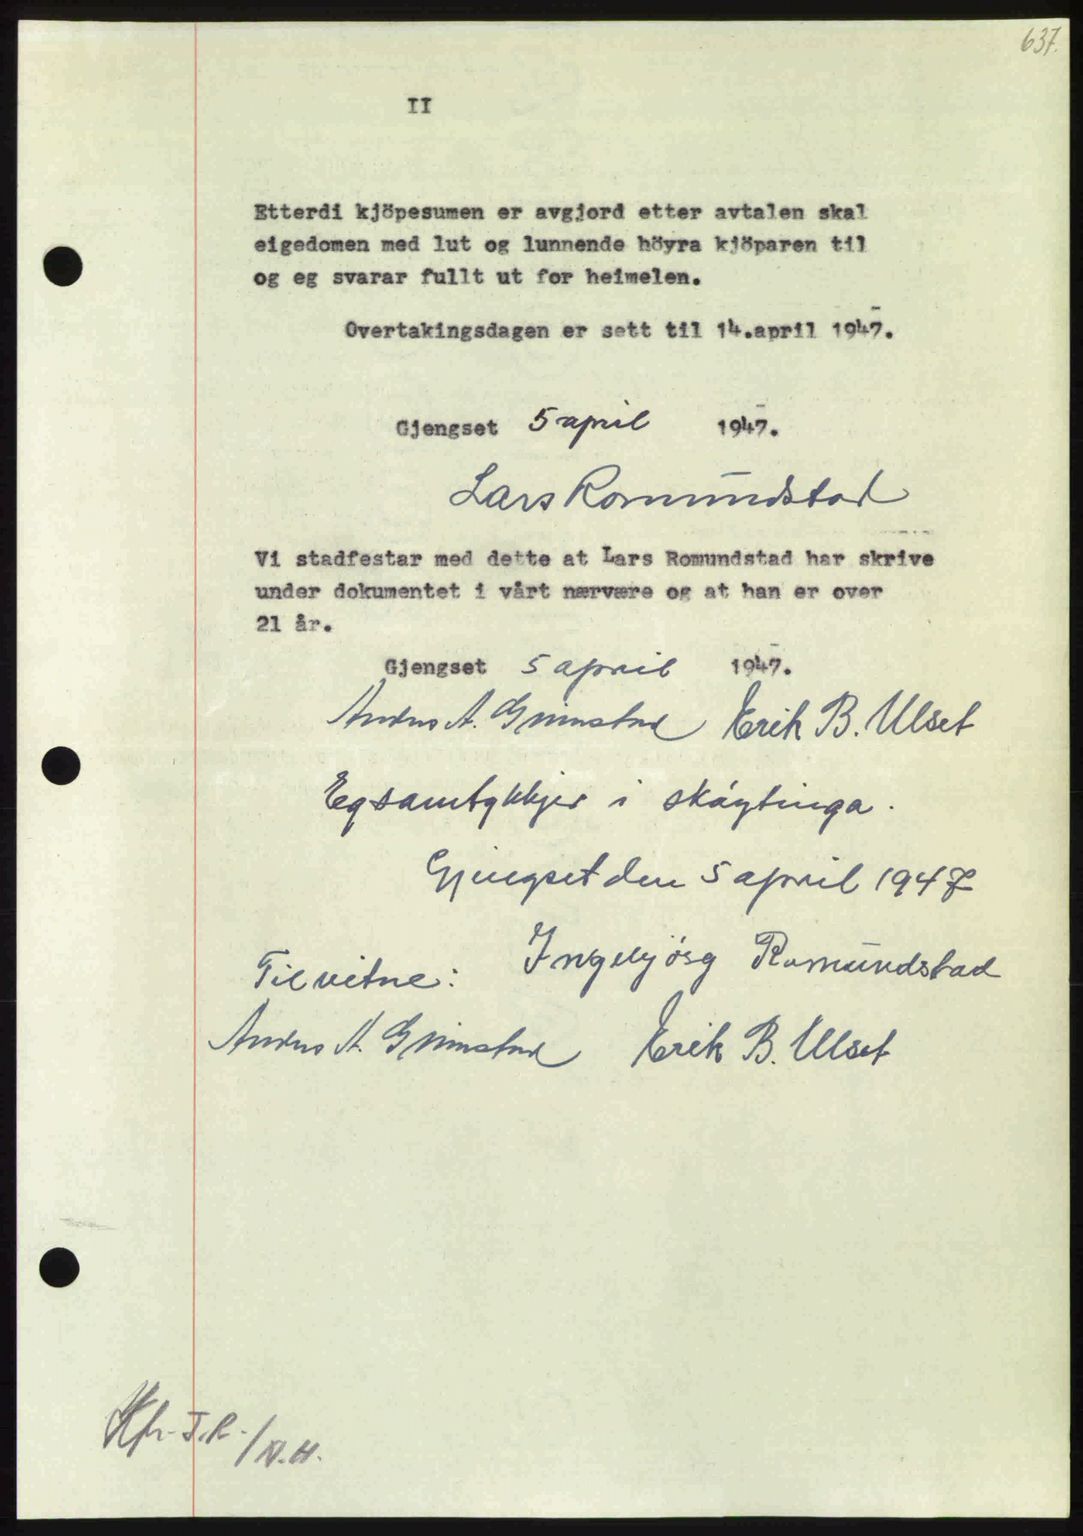 637.
II
Etterdi kjöpesumen er avgjord etter avtalen skal
eigedomen med lut og lunnende höyra kjöparen til
og eg svarar fullt ut for heimelen.
Overtakingsdagen er sett til 14.april 1947.
Gjengset 5 april 1947.
Lars Romundstad
Vi stadfestar med dette at Lars Romundstad har skrive
under dokumentet i vårt nærvære og at han er over
21 år.
Gjengset 5 april 1947.
Anders A. Grimstad Erik B. Ulset
Eg samtykkjer i skøytinga.
Gjengset den 5 april 1947
Ingebjörg Romundstad
Til vitne:
Anders A. Grimstad Erik B. Ulset